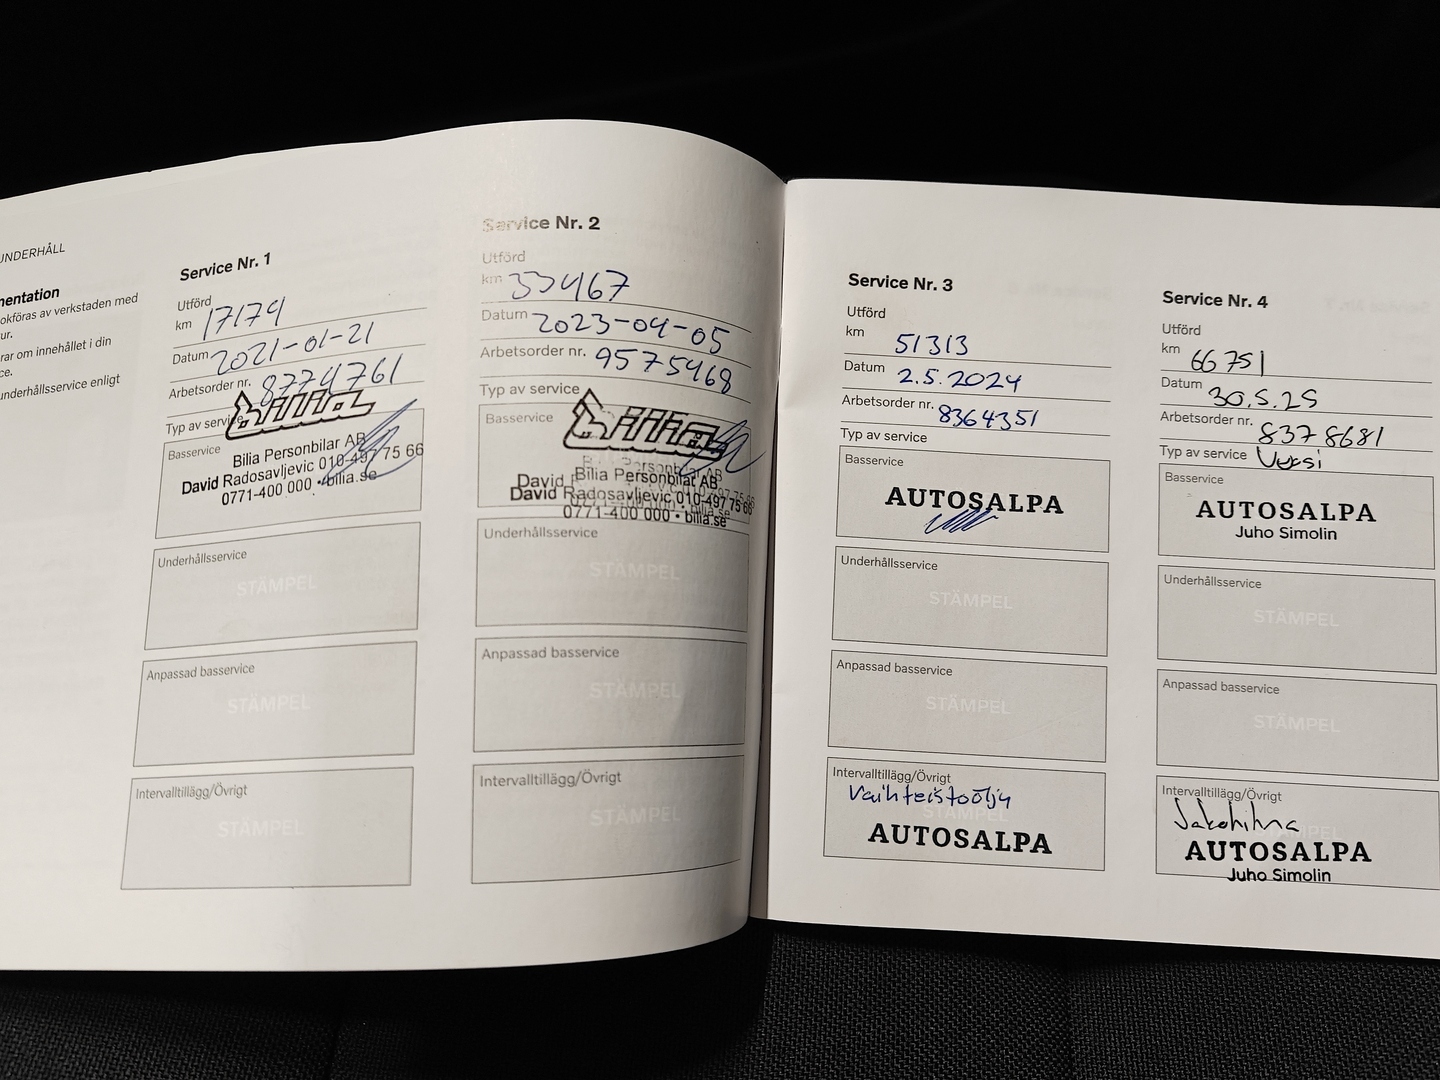 UNDERHÅLL
mentation
okföras av verkstaden med
ur.
rar om innehållet i din
ce.
underhållsservice enligt
Service Nr. 1
Utförd
km 17174
Datum 2021-01-21
Arbetsorder nr. 8774761
Typ av service
Basservice
Bilia
Bilia Personbilar AB
David Radosavljevic 010-497 75 66
0771-400 000 • bilia.se
Underhållsservice
STÄMPEL
Anpassad basservice
STÄMPEL
Intervalltillägg/Övrigt
STÄMPEL
Service Nr. 2
Utförd
km 33467
Datum 2023-04-05
Arbetsorder nr. 9575468
Typ av service
Basservice
Bilia
Bilia Personbilar AB
David Radosavljevic 010-497 75 66
0771-400 000 • bilia.se
Underhållsservice
STÄMPEL
Anpassad basservice
STÄMPEL
Intervalltillägg/Övrigt
STÄMPEL
Service Nr. 3
Utförd
km 51313
Datum 2.5.2024
Arbetsorder nr. 8364351
Typ av service
Basservice
AUTOSALPA
Underhållsservice
STÄMPEL
Anpassad basservice
STÄMPEL
Intervalltillägg/Övrigt
Vaihteistoölju
STÄMPEL
AUTOSALPA
Service Nr. 4
Utförd
km 66751
Datum 30.5.25
Arbetsorder nr. 8378681
Typ av service Vuosi
Basservice
AUTOSALPA
Juho Simolin
Underhållsservice
STÄMPEL
Anpassad basservice
STÄMPEL
Intervalltillägg/Övrigt
Jakohihna
AUTOSALPA
Juho Simolin